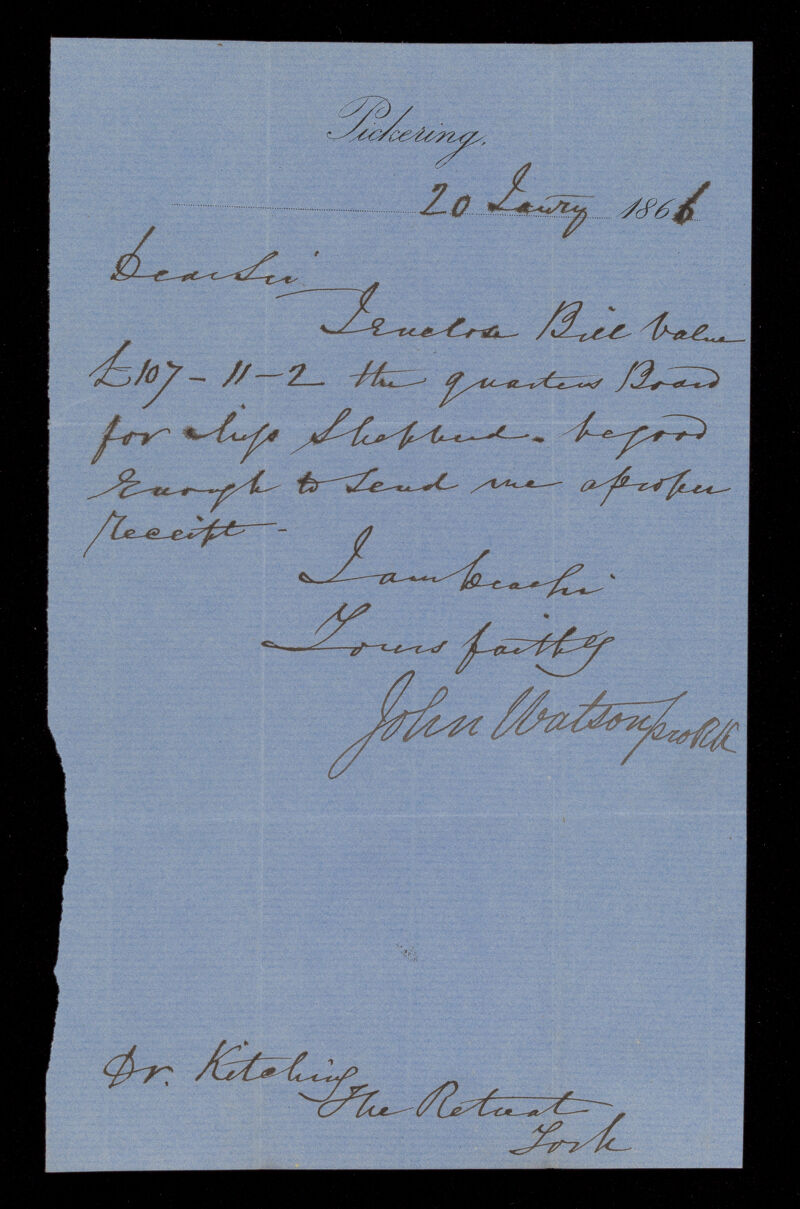 Pickering.
20 Janry 1866
Dear Sir
I Enclose Bill Value
£107-11-2 the quarters Board
for Miss Shepherd. be good
Enough to send me a proper
receipt -
I am Dear Sir
Yours faithy
John Watson pro RK
Dr. Kitching
The Retreat
York